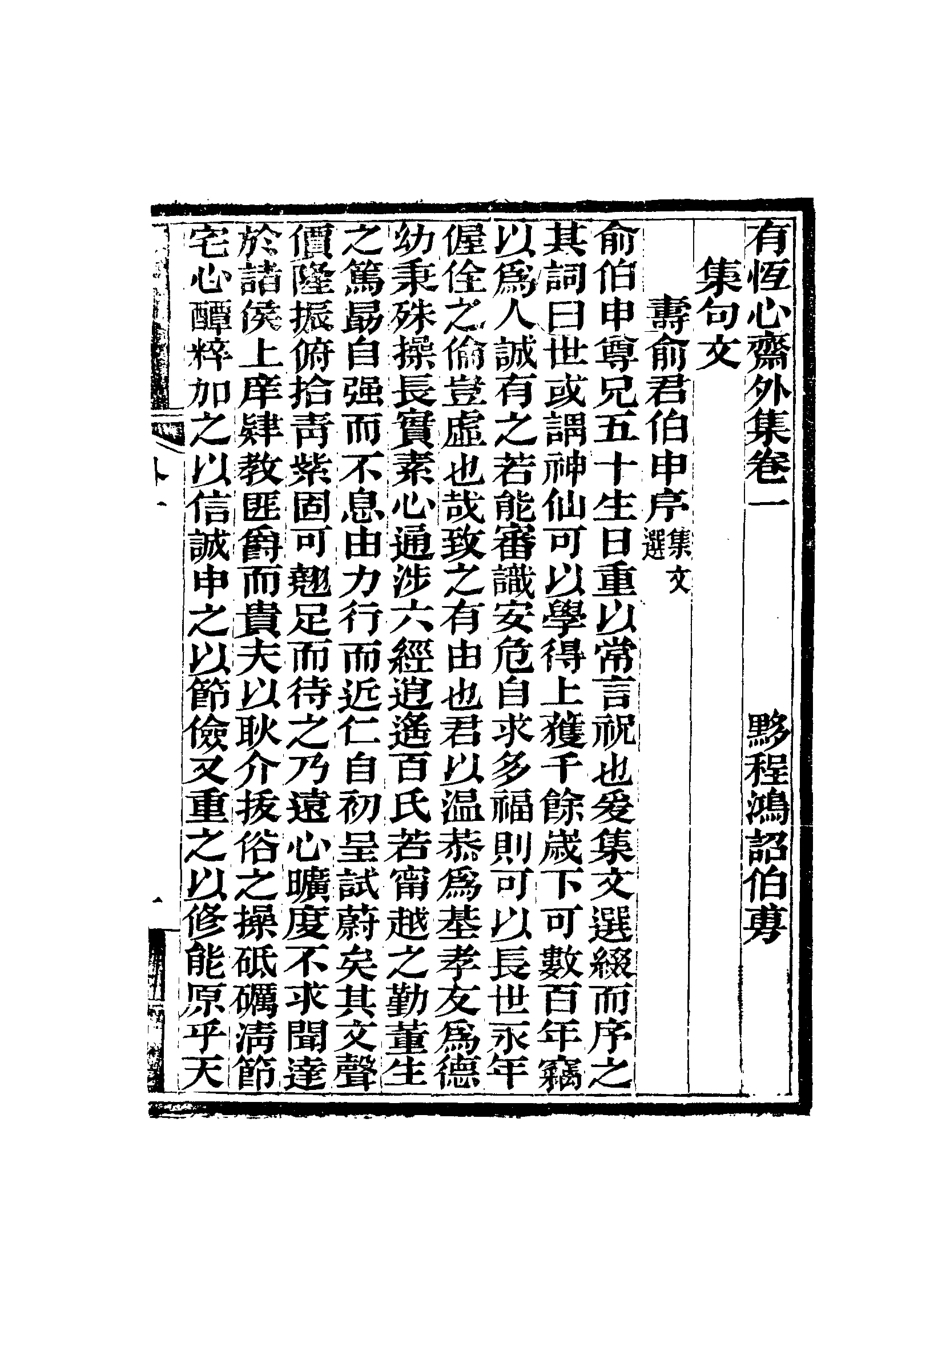 有恆心齋外集卷一 黟程鴻詔伯旉
集句文
壽俞君伯申序 集文選
俞伯申尊兄五十生日重以常言祝也爰集文選綴而序之
其詞曰世或謂神仙可以學得上獲千餘歲下可數百年竊
以爲人誠有之若能審識安危自求多福則可以長世永年
偓佺之倫豈虛也哉致之有由也君以温恭爲基孝友爲德
幼秉殊操長實素心通涉六經逍遙百氏若甯越之勤董生
之篤勗自强而不息由力行而近仁自初呈試蔚矣其文聲
價隆振俯拾青紫固可翹足而待之乃遠心曠度不求聞達
於諸侯上庠肄教匪爵而貴夫以耿介拔俗之操砥礪清節
宅心醰粹加之以信誠申之以節儉又重之以修能原乎天
一